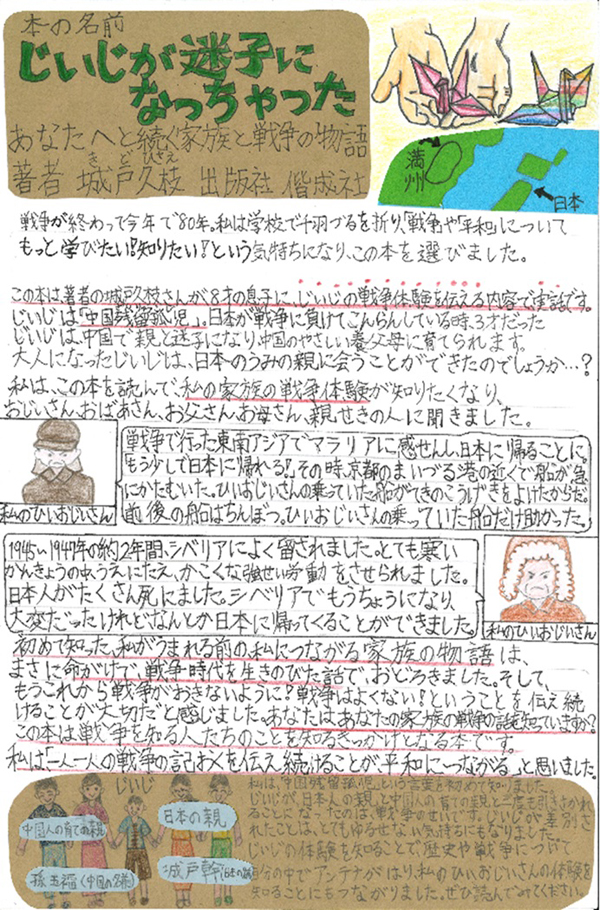 本の名前
じいじが迷子に
なっちゃった
あなたへと続く家族と戦争の物語
きど ひさえ
著者 城戸久枝 出版社 偕成社
満州
日本
戦争が終わって今年で80年。私は学校で千羽づるを折り、「戦争」や「平和」について
もっと学びたい!知りたい!という気持ちになり、この本を選びました。
この本は著者の城戸久枝さんが8才の息子に、じいじの戦争体験を伝える内容で実話です。
じいじは「中国残留孤児」。日本が戦争に負けてこんらんしている時、3才だった
じいじは、中国で親と迷子になり、中国のやさしい養父母に育てられます。
大人になったじいじは、日本のうみの親に会うことができたのでしょうか…?
私は、この本を読んで、私の家族の戦争体験が知りたくなり、
おじいさん、おばあさん、お父さん、お母さん、親せきの人に聞きました。
戦争で行った東南アジアでマラリアに感せんし、日本に帰ることに。
「もう少しで日本に帰れる!」その時、京都のまいづる港の近くで船が急
にかたむいた。ひいおじいさんの乗っていた船がてきのこうげきをよけたからだ。
前後の船はちんぼつ。ひいおじいさんの乗っていた船だけ助かった。
私のひいおじいさん
1945~1947年の約2年間、シベリアによく留されました。とても寒い
かんきょうの中、うえにたえ、かこくな強せい労動をさせられました。
日本人がたくさん死にました。シベリアでもうちょうになり、
大変だったけれど、なんとか日本に帰ってくることができました。
私のひいおじいさん
初めて知った、私がうまれる前の、私につながる家族の物語は、
まさに命がけで、戦争時代を生きのびた話で、おどろきました。そして、
もうこれから戦争がおきないように!戦争はよくない!ということを伝え続
けることが大切だと感じました。あなたは、あなたの家族の戦争の話を知っていますか?
この本は戦争を知る人たちのことを知るきっかけとなる本です。
私は「一人一人の戦争の記おくを伝え続けることが、平和につながる」と思いました。
じいじ
中国人の育ての親
日本の親
孫玉福(中国の名前)
城戸幹
私は、「中国残留孤児」という言葉を初めて知りました。
じいじが、日本人の親と中国人の育ての親と二度も引きさかれ
ることになったのは、戦争のせいです。じいじが差別さ
れたことは、とてもゆるせない気持ちにもなりました。
じいじの体験を知ることで歴史や戦争について
自分の中でアンテナがはり、私のひいおじいさんの体験を
知ることにもつながりました。ぜひ読んでみてください。